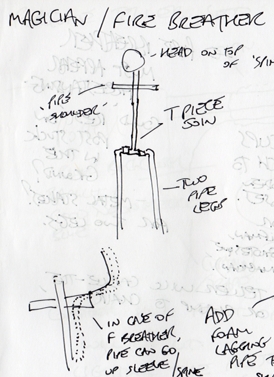 MAGICIAN / FIRE BREATHER
HEAD ON TOP
OF 'SPIN
'PIPE
SHOULDER'
T PIECE
JOIN
TWO
PIPE
LEGS
IN CASE OF
F BREATHER,
PIPE CAN GO
UP SLEEVE / SPINE
ADD
FOAM
LAGGING
PIPE T